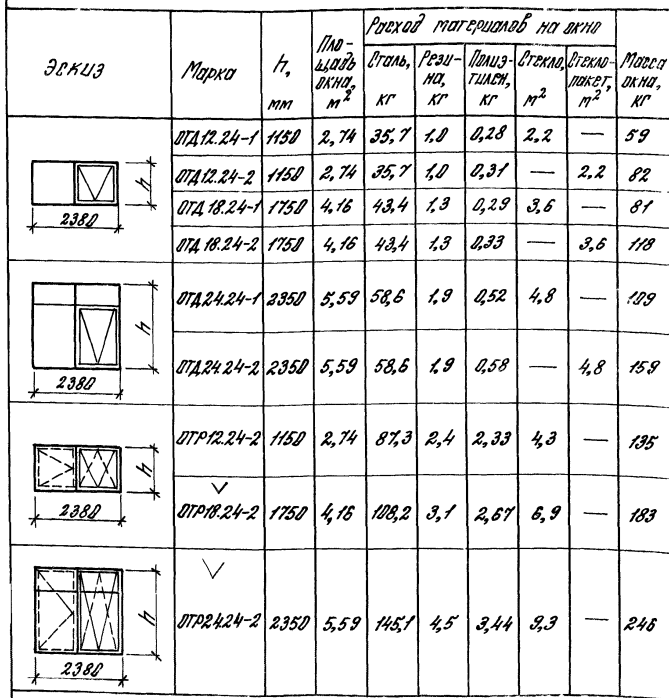 Эскиз | Марка | h, мм | Площадь окна, м² | Расход материалов на окно | Масса окна, кг
Сталь, кг | Резина, кг | Полиэтилен, кг | Стекло, м² | Стеклопакет, м²
2380 h
ОТД12.24-1 1150 2,74 35,7 1,0 0,28 2,2 — 59
ОТД12.24-2 1150 2,74 35,7 1,0 0,31 — 2,2 82
ОТД18.24-1 1750 4,16 43,4 1,3 0,29 3,6 — 81
ОТД18.24-2 1750 4,16 43,4 1,3 0,33 — 3,6 118
2380 h
ОТД24.24-1 2350 5,59 58,6 1,9 0,52 4,8 — 109
ОТД24.24-2 2350 5,59 58,6 1,9 0,58 — 4,8 159
2380 h
ОТР12.24-2 1150 2,74 87,3 2,4 2,33 4,3 — 135
ОТР18.24-2 1750 4,16 108,2 3,1 2,67 6,9 — 183
2380 h
ОТР24.24-2 2350 5,59 145,1 4,5 3,44 9,3 — 246